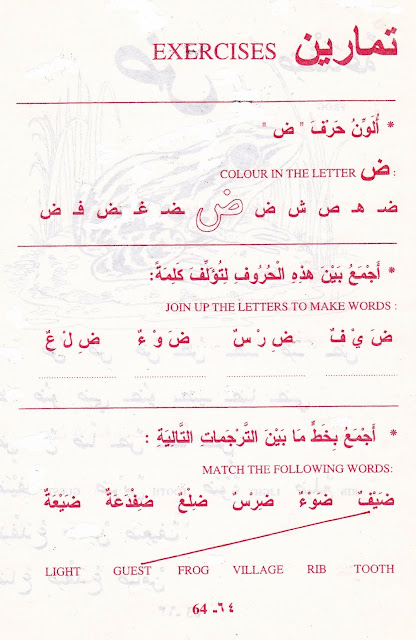 تمارين EXERCISES
* أُلَوِّنُ حَرْفَ " ض "
COLOUR IN THE LETTER ض :
ضـ هـ ص ش ض ض ـضـ غـ ـض فـ ض
* أَجْمَعُ بَيْنَ هذِهِ الْحُرُوفِ لِتُؤَلِّفَ كَلِمَةً:
JOIN UP THE LETTERS TO MAKE WORDS :
ضَ يْ فٌ ضِ رْ سٌ ضَ وْ ءٌ ضِ لْ عٌ
* أَجْمَعُ بِخَطٍّ مَا بَيْنَ التَّرْجَماتِ التَّالِيَةِ :
MATCH THE FOLLOWING WORDS:
ضَيْفٌ ضَوْءٌ ضِرْسٌ ضِلْعٌ ضِفْدَعَةٌ ضَيْعَةٌ
LIGHT GUEST FROG VILLAGE RIB TOOTH
64 ـ ٦٤